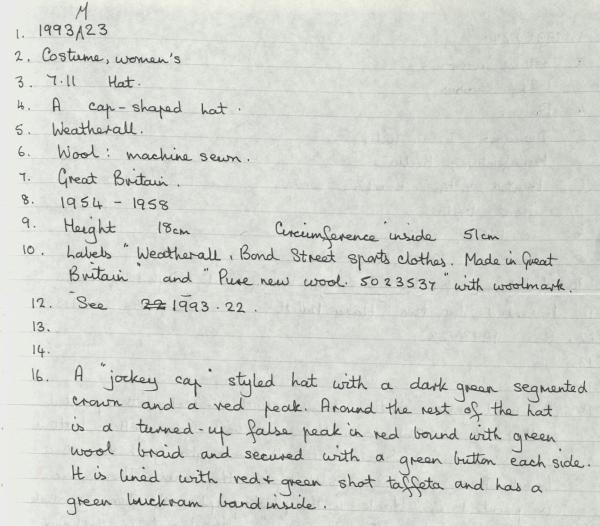 M
1. 1993 23
2. Costume, women's
3. 7.11 Hat.
4. A cap-shaped hat.
5. Weatherall.
6. Wool: machine sewn.
7. Great Britain.
8. 1954 - 1958
9. Height 18cm Circumference inside 51cm
10. Labels "Weatherall, Bond Street sports clothes. Made in Great
Britain" and "Pure new wool. 5023537" with woolmark.
12. See 22 1993.22.
13.
14.
16. A "jockey cap" styled hat with a dark green segmented
crown and a red peak. Around the rest of the hat
is a turned-up false peak in red bound with green
wool braid and secured with a green button each side.
It is lined with red + green shot taffeta and has a
green buckram band inside.